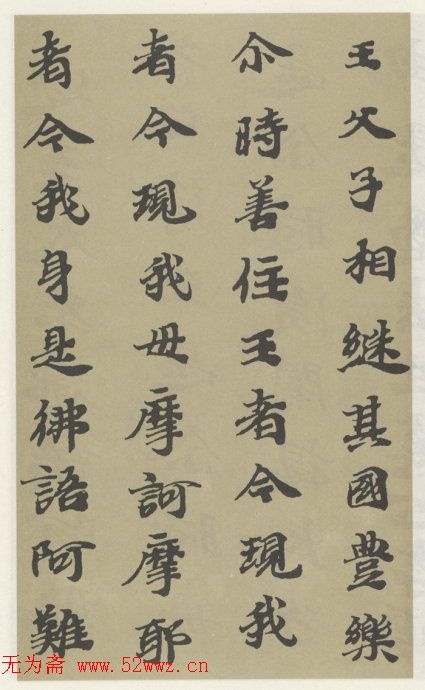 王父子相継其國豊樂
尒時善住王者今現我
者今現我母摩訶摩耶
者今我身是彿語阿難
无为斋 www.52wwz.cn